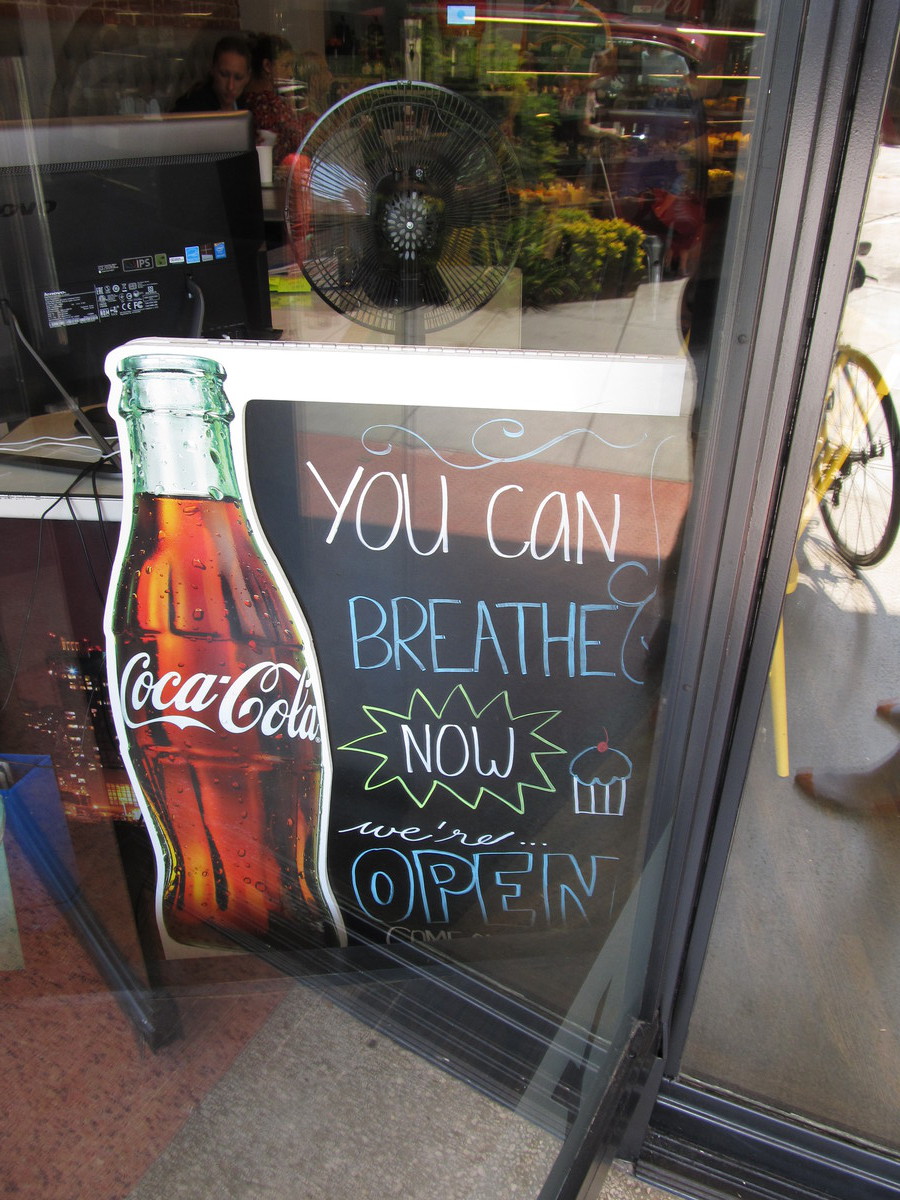 IPS
YOU CAN
BREATHE
NOW
we're...
OPEN
COME
Coca-Cola